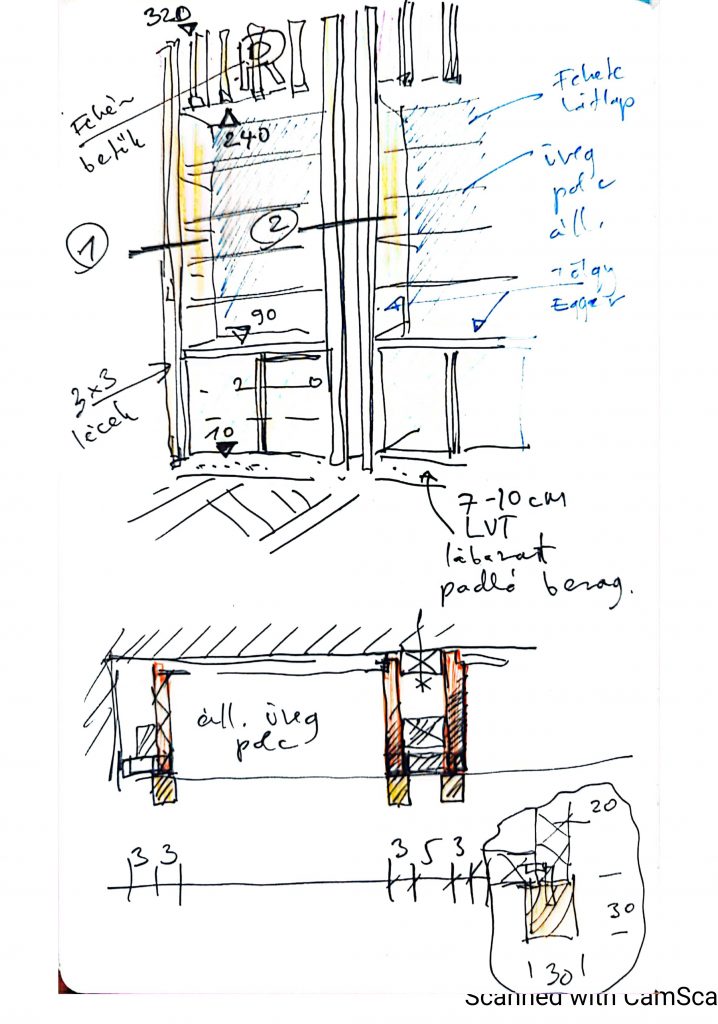 320
R
Fehér
betűk
240
Fehete
hátlap
üveg
polc
áll.
1
2
tölgy
Egger
90
3x3
lécek
2
0
10
7-10 cm
LVT
lábazat
padló berag.
áll. üveg
polc
3 3
3 5 3
20
30
30
Scanned with CamSca